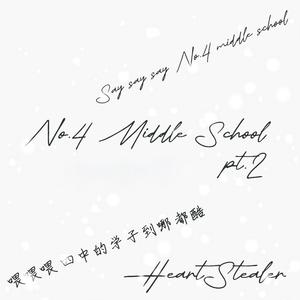 Say say say No.4 middle school
No.4 Middle School
pt.2
喂喂喂 四中的学子到哪都酷
—HeartStealer